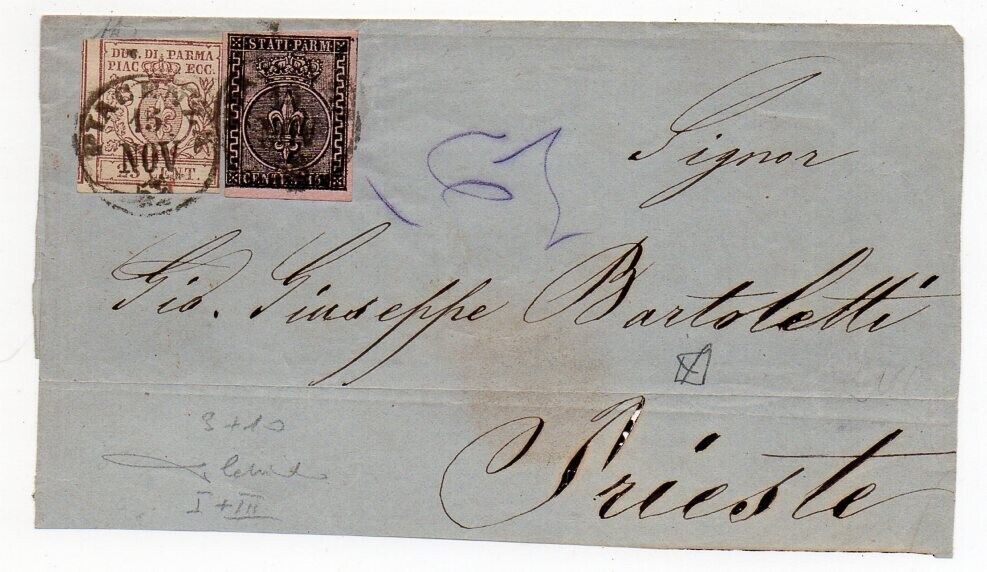 DUC. DI PARMA
PIAC. ECC.
15 CENT.
PIACENZA
15
NOV
STATI PARM
CENTES. 15
Signor
Gio. Giuseppe Bartoletti
Trieste
3+10
I + III